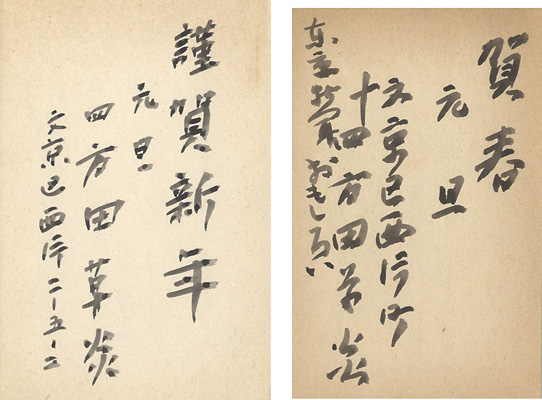 謹賀新年
元旦
四方田草炎
文京区西片二ー五ー二
賀春
元旦
文京区西片町
十四方田草炎
東京 おもしろい